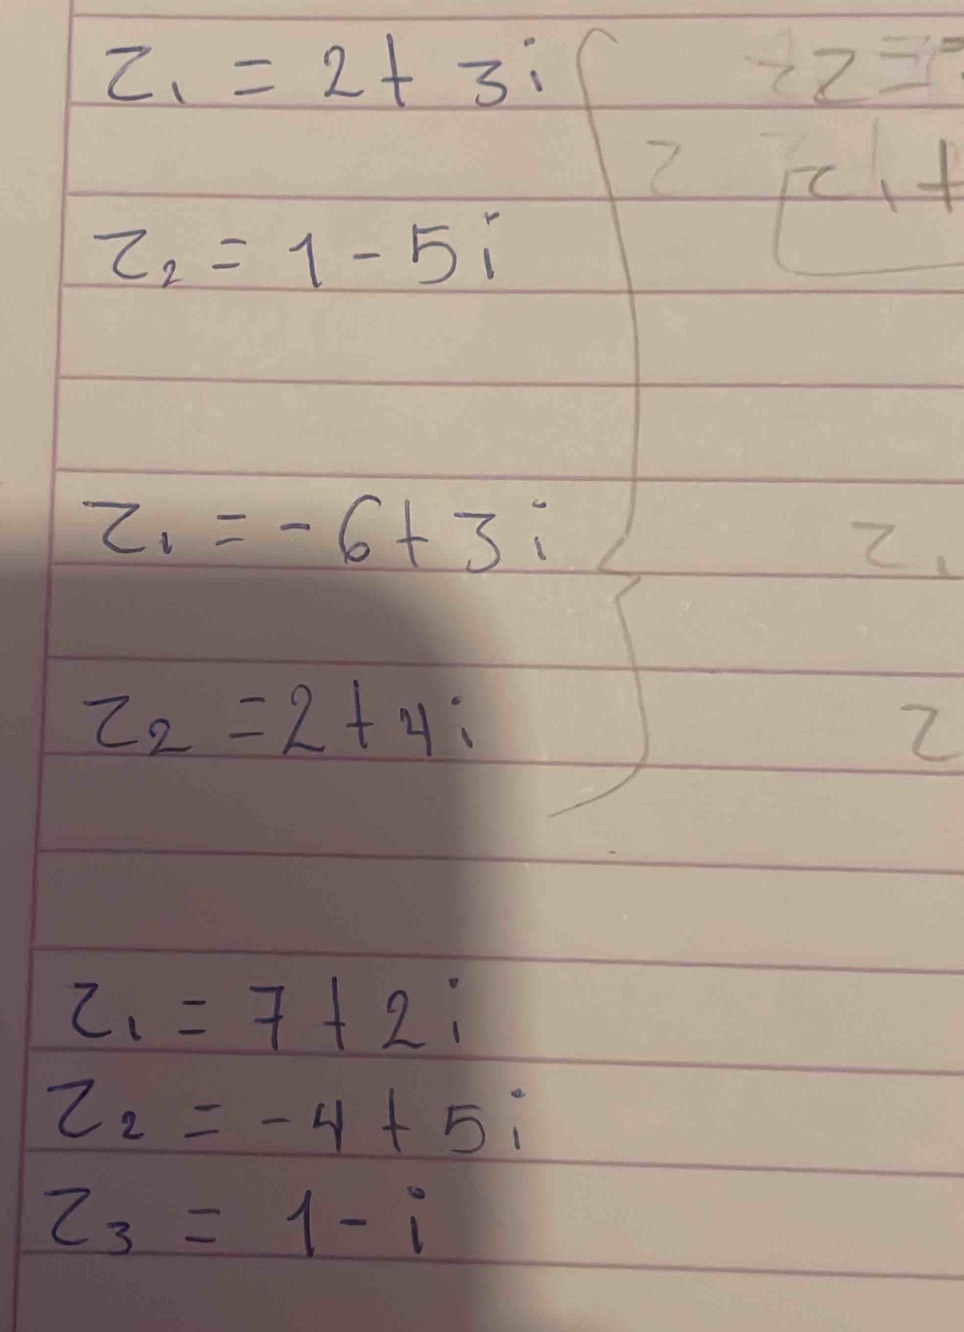 z₁ = 2 + 3i
z₂ = 1 - 5i
z₁ = -6 + 3i
z₂ = 2 + 4i
z₁ = 7 + 2i
z₂ = -4 + 5i
z₃ = 1 - i